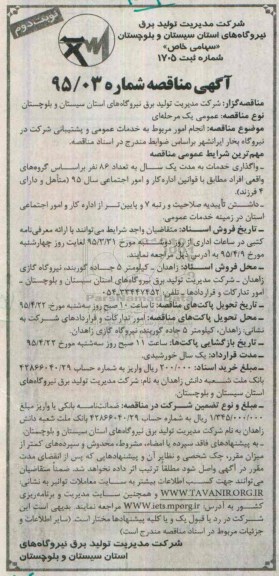 نوبت دوم
شرکت مدیریت تولید برق
نیروگاه‌های استان سیستان و بلوچستان
«سهامی خاص»
شماره ثبت ۱۷۰۵
آگهی مناقصه شماره ۹۵/۰۳
مناقصه‌گزار: شرکت مدیریت تولید برق نیروگاه‌های استان سیستان و بلوچستان
نوع مناقصه: عمومی یک مرحله‌ای
موضوع مناقصه: انجام امور مربوط به خدمات عمومی و پشتیبانی شرکت در
نیروگاه بخار ایرانشهر براساس ضوابط مندرج در اسناد مناقصه.
مهم‌ترین شرایط عمومی مناقصه
ـ واگذاری خدمات به مدت یک سال به تعداد ۸۶ نفر براساس گروه‌های
واقعی افراد مطابق با قوانین اداره کار و امور اجتماعی سال ۹۵ (متأهل و دارای
۴ فرزند).
ـ داشتن تأییدیه صلاحیت و رتبه ۷ و پایین‌تر از اداره کار و امور اجتماعی
استان در زمینه خدمات عمومی.
ـ تاریخ فروش اسناد: متقاضیان واجد شرایط می‌توانند با ارائه معرفی‌نامه
کتبی در ساعات اداری از روز دوشنبه مورخ ۹۵/۳/۳۱ لغایت روز چهارشنبه
مورخ ۹۵/۴/۹ به آدرس ذیل مراجعه نمایند.
ـ محل فروش اسناد: زاهدان ـ کیلومتر ۵ جاده گوربند، نیروگاه گازی
زاهدان ـ شرکت مدیریت تولید برق نیروگاه‌های استان سیستان و بلوچستان ـ
امور تدارکات و قراردادها ـ تلفن:
ـ تاریخ تحویل پاکت‌های مناقصه: تا ساعت ۱۰ صبح روز سه‌شنبه مورخ ۹۵/۴/۲۲
ـ محل تحویل پاکت‌های مناقصه: امور تدارکات و قراردادهای شرکت به
نشانی: زاهدان، کیلومتر ۵ جاده گوربند، نیروگاه گازی زاهدان.
ـ تاریخ بازگشایی پاکت‌ها: ساعت ۱۱ صبح روز سه‌شنبه مورخ ۹۵/۴/۲۲
ـ مدت قرارداد: یک سال خورشیدی.
ـ مبلغ خرید اسناد: ۲۰۰/۰۰۰ ریال واریز به شماره حساب ۴۲۸۶۶۰۴۰۲۹
بانک ملت شعبه دانش زاهدان به نام: شرکت مدیریت تولید برق نیروگاه‌های
استان سیستان و بلوچستان.
ـ مبلغ و نوع تضمین شرکت در مناقصه: ضمانت‌نامه بانکی یا واریز مبلغ
ریال به شماره حساب ۴۲۸۶۶۰۴۰۲۹ بانک ملت شعبه دانش
زاهدان به نام شرکت مدیریت تولید برق نیروگاه‌های استان سیستان و بلوچستان.
ـ به پیشنهادهای فاقد سپرده یا امضاء، مشروط، مخدوش و سپرده‌های کمتر از
میزان مقرر، چک شخصی و نظایر آن و پیشنهادهایی که پس از انقضای مدت
مقرر در آگهی واصل شود مطلقاً ترتیب اثر داده نخواهد شد. ضمناً متقاضیان
می‌توانند جهت کسب اطلاعات بیشتر به سایت معاملات توانیر به نشانی
WWW.TAVANIR.ORG.IR و همچنین سایت مدیریت و برنامه‌ریزی
کشور به آدرس: WWW.iets.mporg.ir مراجعه نمایند. بدیهی است این
شرکت در رد یا قبول یک و یا کلیه پیشنهادها مختار است. (سایر اطلاعات و
جزئیات مربوط در اسناد مناقصه مندرج است)
شرکت مدیریت تولید برق نیروگاه‌های
استان سیستان و بلوچستان